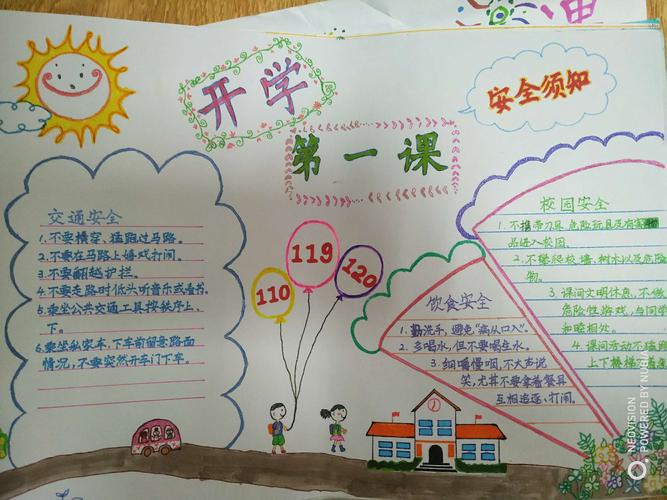 开学
第一课
安全须知
交通安全
1.不要横穿、猛跑过马路。
2.不要在马路上嬉戏打闹。
3.不要翻越护栏。
4.不要走路时低头听音乐或看书。
5.乘坐公共交通工具按秩序上、
下。
6.乘坐私家车,下车前留意路面
情况,不要突然开车门下车。
110
119
120
饮食安全
1.勤洗手,避免"病从口入"。
2.多喝水,但不要喝生水。
3.细嚼慢咽,不大声说
笑,尤其不要拿着餐具
互相追逐、打闹。
校园安全
1.不携带刀具 危险玩具及
品进入校园。
2.不攀爬校墙、树木以及危险
物。
3.课间文明休息,不做
危险性游戏,与同学
和睦相处。
4.课间活动不猛跑
上下楼梯
NEOVISION
POWERED BY NUBIA